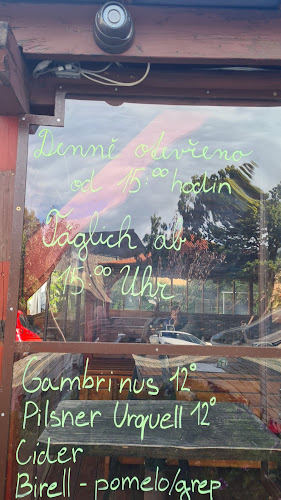 Denně otevřeno
od 15:00 hodin
Täglich ab
15:00 Uhr
Gambrinus 12°
Pilsner Urquell 12°
Cider
Birell - pomelo/grep